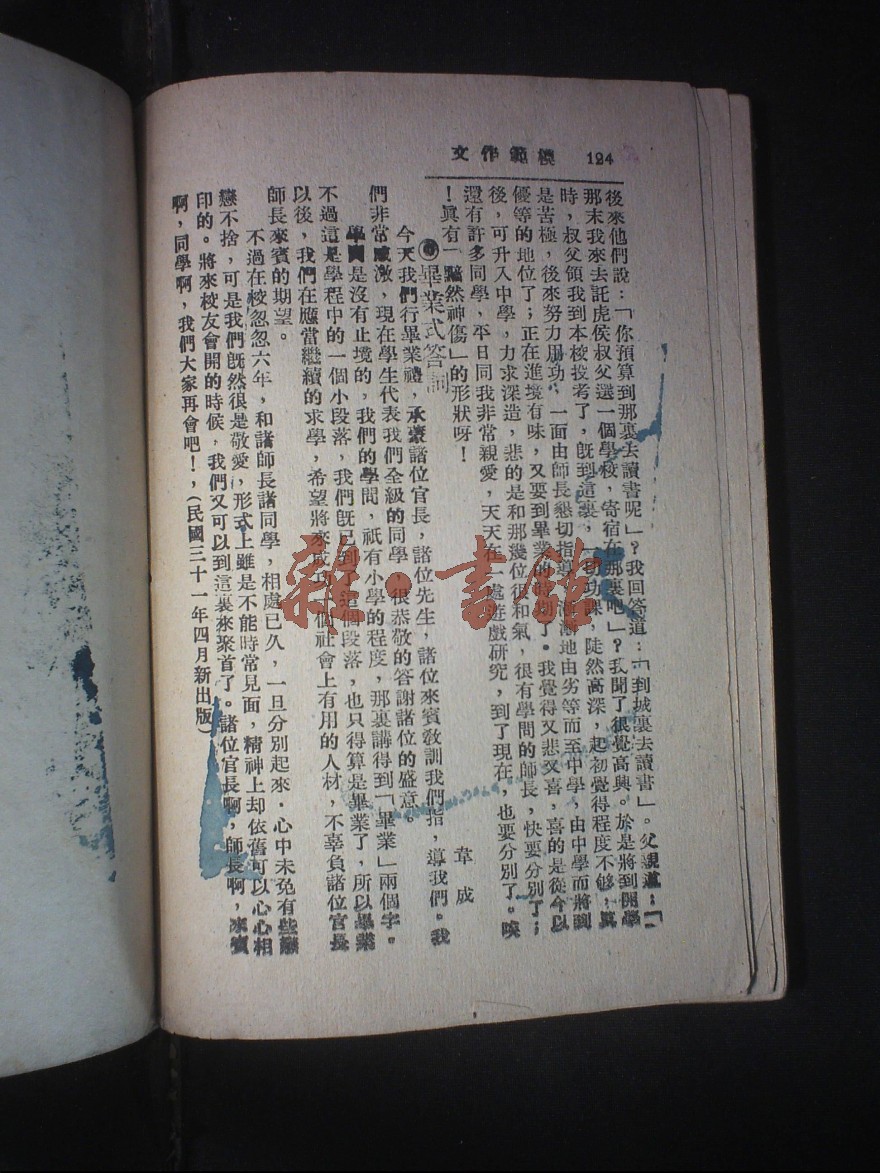 124　模範作文
後來他們說：「你預算到那裏去讀書呢」？我回答道：「到城裏去讀書」。父親道：「
那末我來去託虎侯叔父選一個學校，寄宿在那裏吧」？我聞了很覺高興。於是將到開學
時，叔父領我到本校投考了，旣到這裏，功課，陡然高深，起初覺得程度不够，眞
是苦極，後來努力用功，一面由師長懇切指導，漸漸地由劣等而至中學，由中學而將到
優等的地位了；正在進境有味，又要到畢業的時切了。我覺得又悲又喜，喜的是從今以
後，可升入中學，力求深造，悲的是和那幾位很和氣，很有學間的師長，快要分別了；
還有許多同學，平日同我非常親愛，天天在一處遊戲研究，到了現在，也要分別了。唉
！眞有「黯然神傷」的形狀呀！
畢業式答詞　韋成
今天我們行畢業禮，承蒙諸位官長，諸位先生，諸位來賓敎訓我們指，導我們。我
們非常感激，現在學生代表我們全級的同學，很恭敬的答謝諸位的盛意。
學問是沒有止境的，我們的學間，祇有小學的程度，那裏講得到「畢業」兩個字。
不過這是學程中的一個小段落，我們旣已到了這個段落，也只得算是畢業了，所以畢業
以後，我們在應當繼續的求學，希望將來成功一個社會上有用的人材，不辜負諸位官長
師長來賓的期望。
不過在校忽忽六年，和諸師長諸同學，相處已久，一旦分別起來．心中未免有些戀
戀不捨，可是我們旣然很是敬愛，形式上雖是不能時常見面，精神上却依舊可以心心相
印的。將來校友會開的時候，我們又可以到這裏來聚首了。諸位官長啊，師長啊，來賓
啊，同學啊，我們大家再會吧！，（民國三十一年四月新出版）
雜·書館